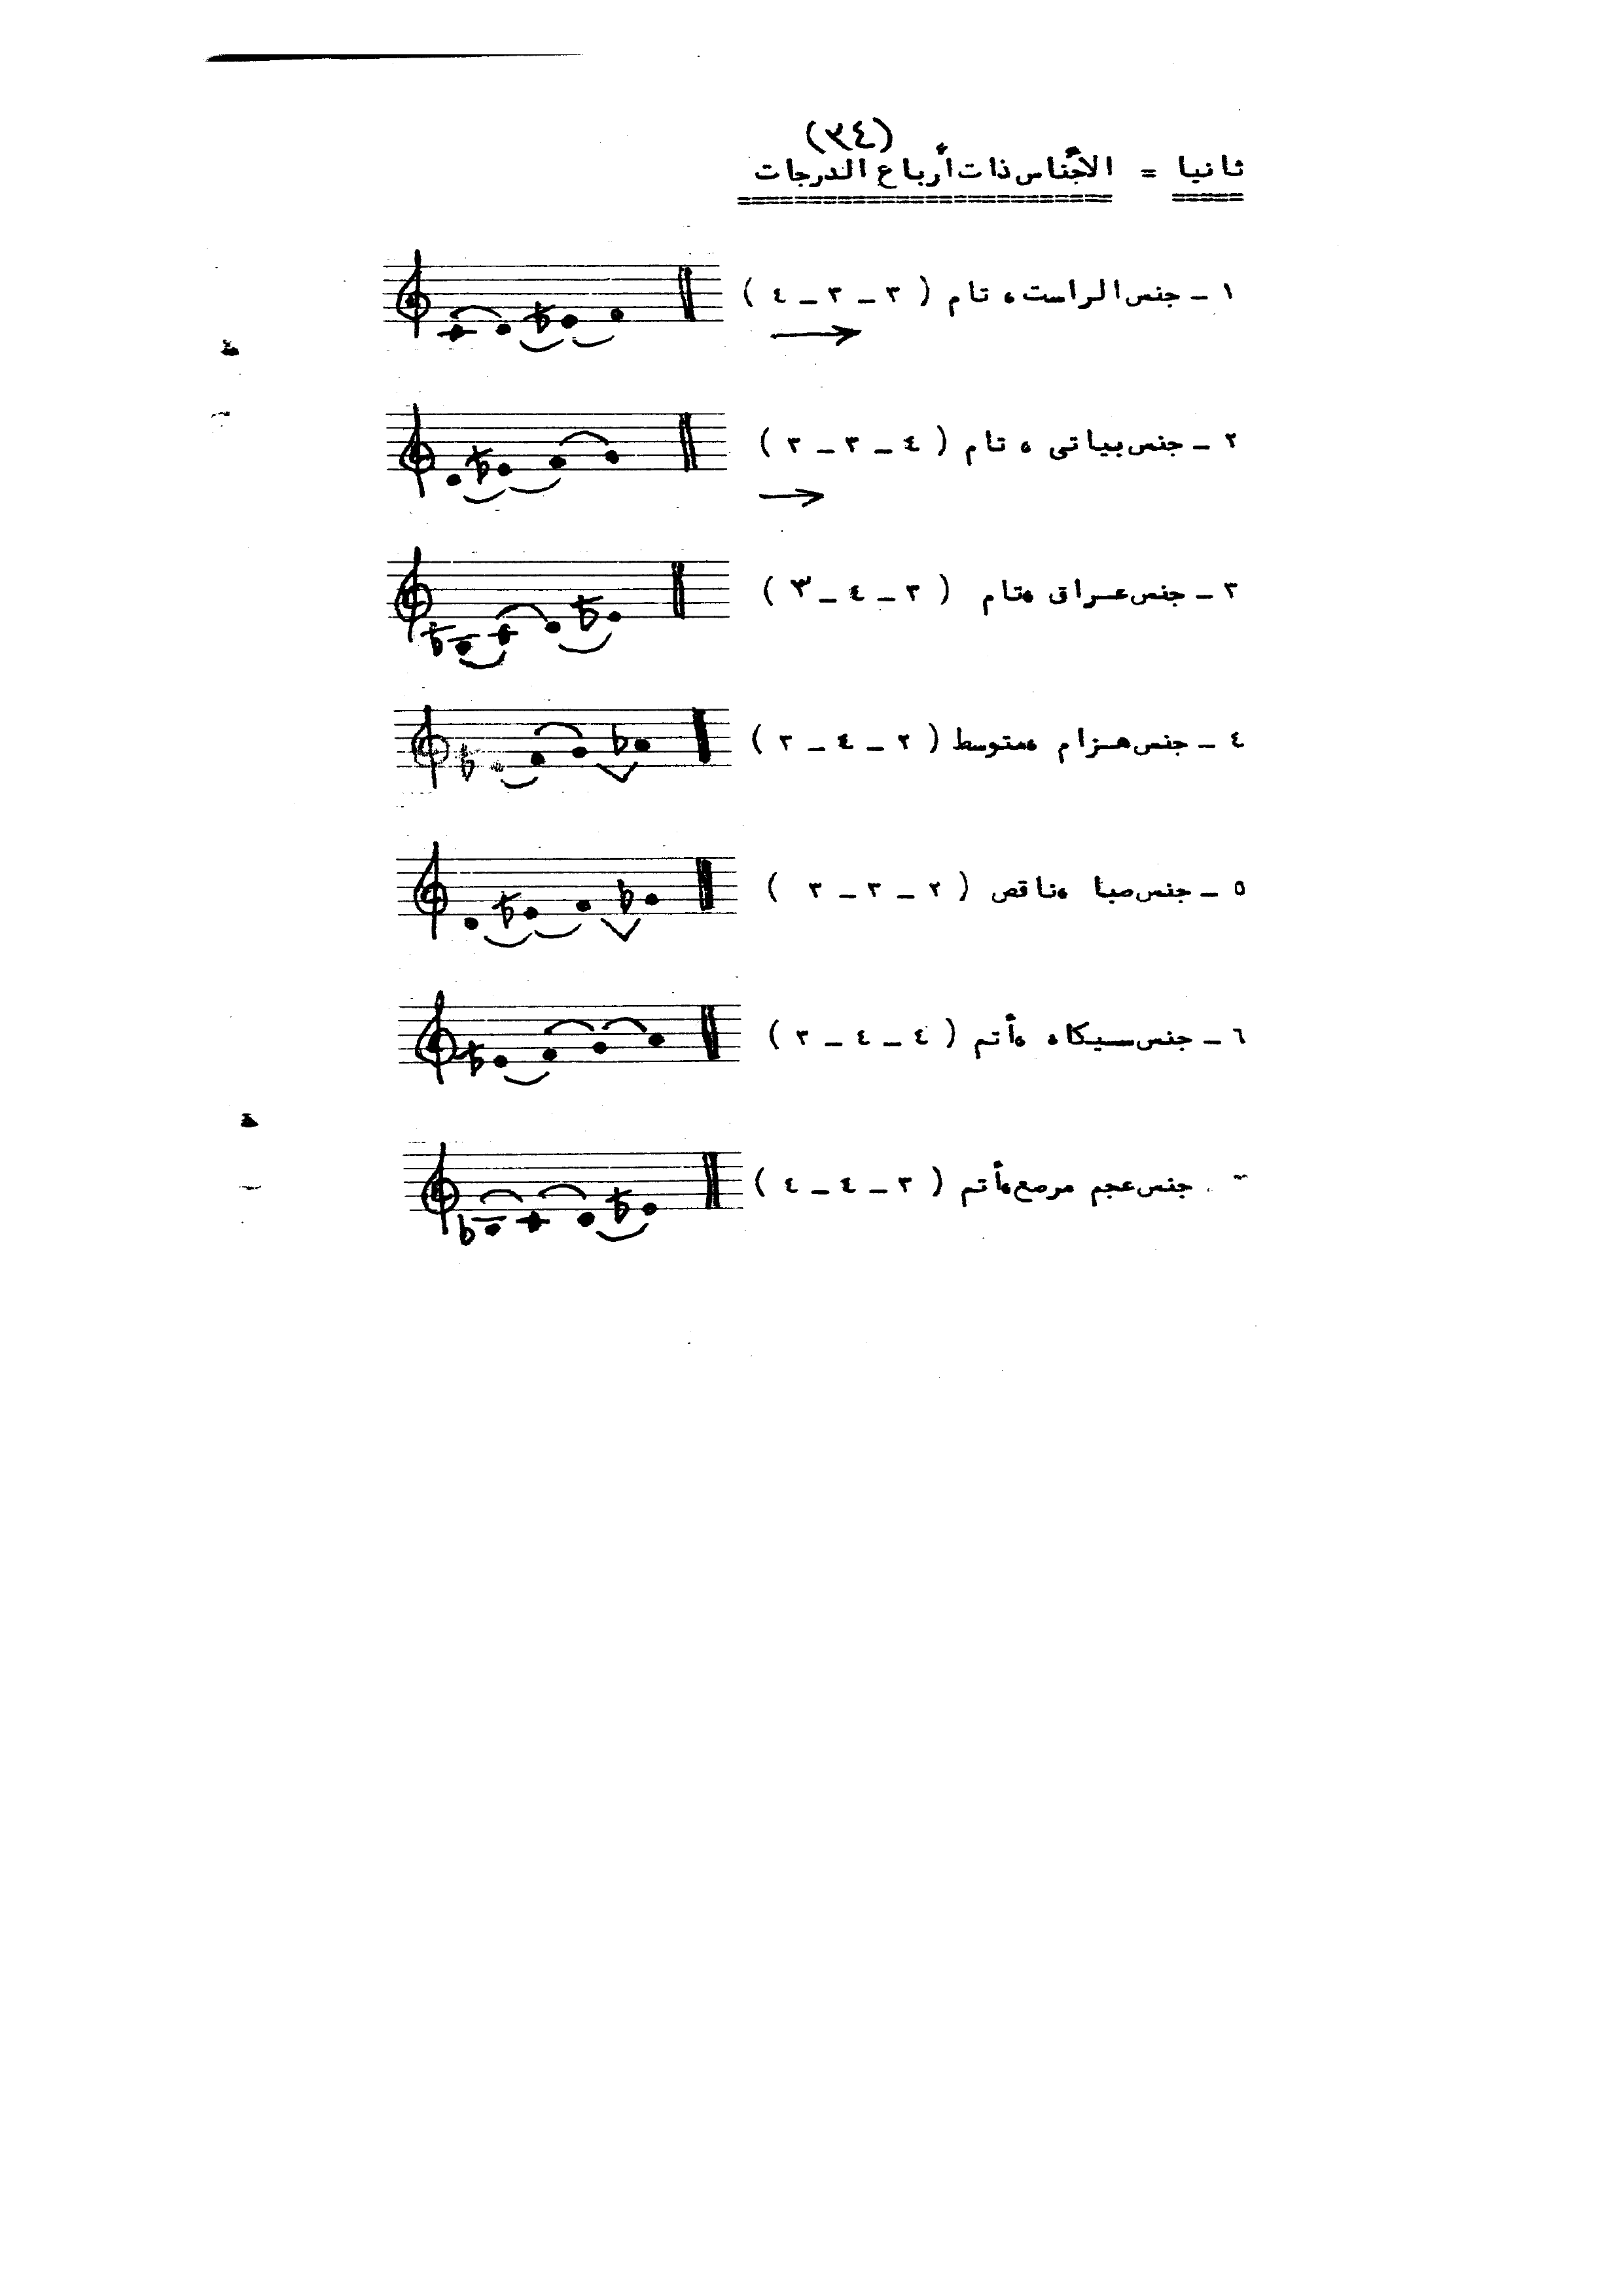 (٣٤)
ثانيا = الأجناس ذات أرباع الدرجات
١ - جنس الراست ، تام ( ٣ - ٣ - ٤ )
٢ - جنس بياتى ، تام ( ٤ - ٣ - ٣ )
٣ - جنس عراق ، تام ( ٣ - ٤ - ٣ )
٤ - جنس هزام ، متوسط ( ٢ - ٤ - ٣ )
٥ - جنس صبا ، ناقص ( ٢ - ٣ - ٣ )
٦ - جنس سيكاه ، أتم ( ٤ - ٤ - ٣ )
جنس عجم مرصع ، أتم ( ٣ - ٤ - ٤ )